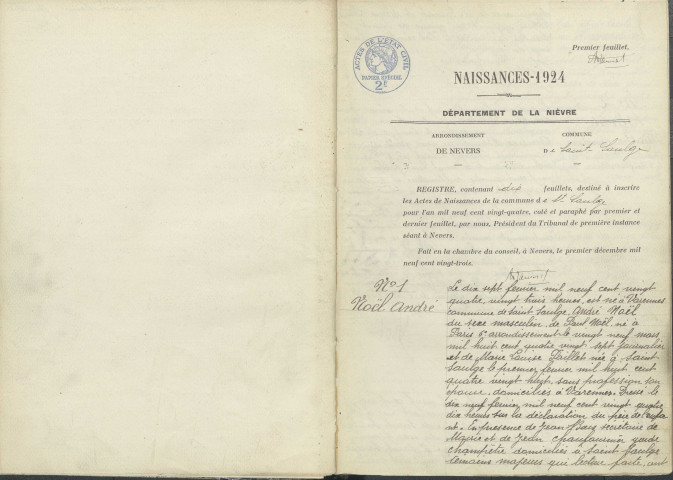 Premier feuillet.
ACTES DE L'ÉTAT CIVIL
PAPIER SPÉCIAL
2F
NAISSANCES-1924
DÉPARTEMENT DE LA NIÈVRE
ARRONDISSEMENT
DE NEVERS
COMMUNE
De Saint-Saulge
REGISTRE, contenant dix feuillets, destiné à inscrire
les Actes de Naissances de la commune de St Saulge
pour l'an mil neuf cent vingt-quatre, coté et paraphé par premier et
dernier feuillet, par nous, Président du Tribunal de première instance
séant à Nevers.
Fait en la chambre du conseil, à Nevers, le premier décembre mil
neuf cent vingt-trois.
N° 1
Noël André
Le dix sept fevrier mil neuf cent vingt
quatre vingt trois heures, est né à Varennes
commune de Saint Saulge, André Noël
du sexe masculin, de Paul Noël né à
Paris 6e arrondissement le vingt neuf mars
mil huit cent quatre vingt sept journalier
et de Marie Louise Paillet née à Saint
Saulge le premier fevrier mil huit cent
quatre vingt huit, sans profession son
épouse, domiciliés à Varennes. Dressé le
dix neuf fevrier mil neuf cent vingt quatre
dix heures sur la déclaration du père de l'enfa
nt. En presence de Jean secrétaire de
Mairie et de Jean Chaufournier garde
champêtre domiciliés à Saint Saulge
temoins majeurs qui lecture faite, ont